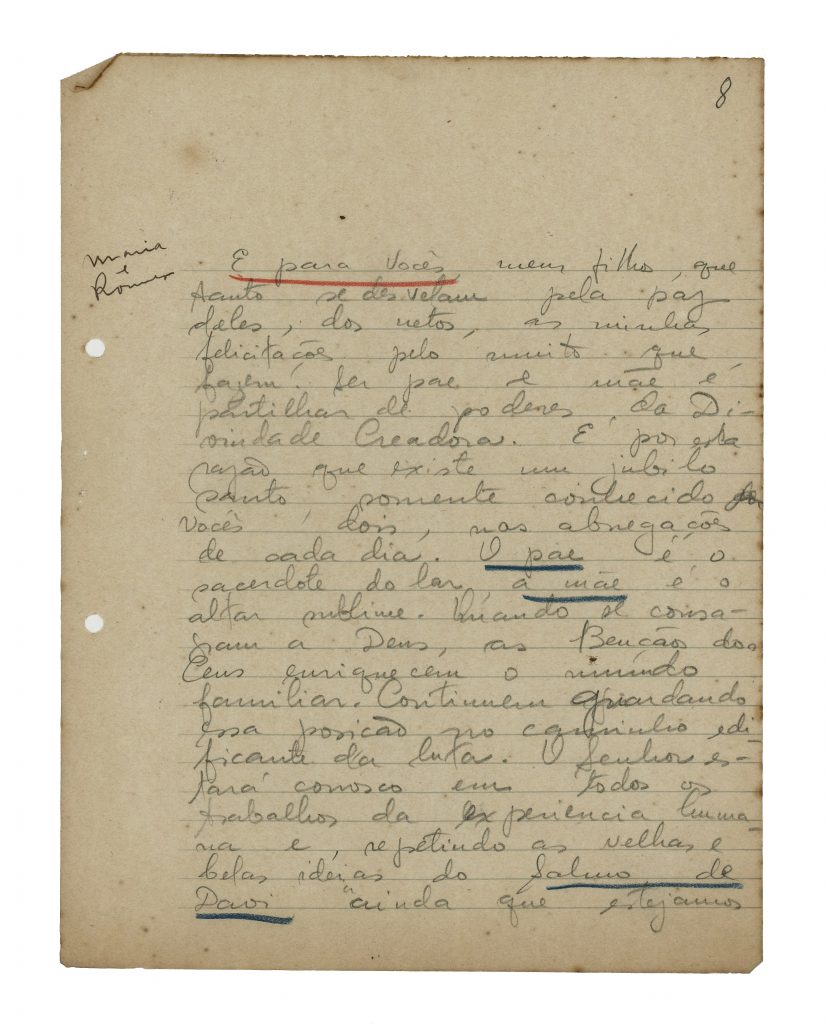 8
Maria
e
Romeu
E para vocês, meus filhos, que
tanto se desvelam pela paz
deles, dos netos, as minhas
felicitações pelo muito que
fazem. Ser pae e mãe é
partilhar de poderes da Di-
vindade Creadora. E por esta
razão que existe um jubilo
santo, somente conhecido por
vocês dois, nas abnegações
de cada dia. O pae é o
sacerdote do lar, a mãe é o
altar sublime. Quando se consa-
gram a Deus, as Bençãos dos
Ceus enriquecem o mundo
familiar. Continuem guardando
essa posição no caminho edi-
ficante da luta. O Senhor es-
tará conosco em todos os
trabalhos da experiencia huma-
na e, repetindo as velhas e
belas idéias do Salmo de
Davi "ainda que estejamos